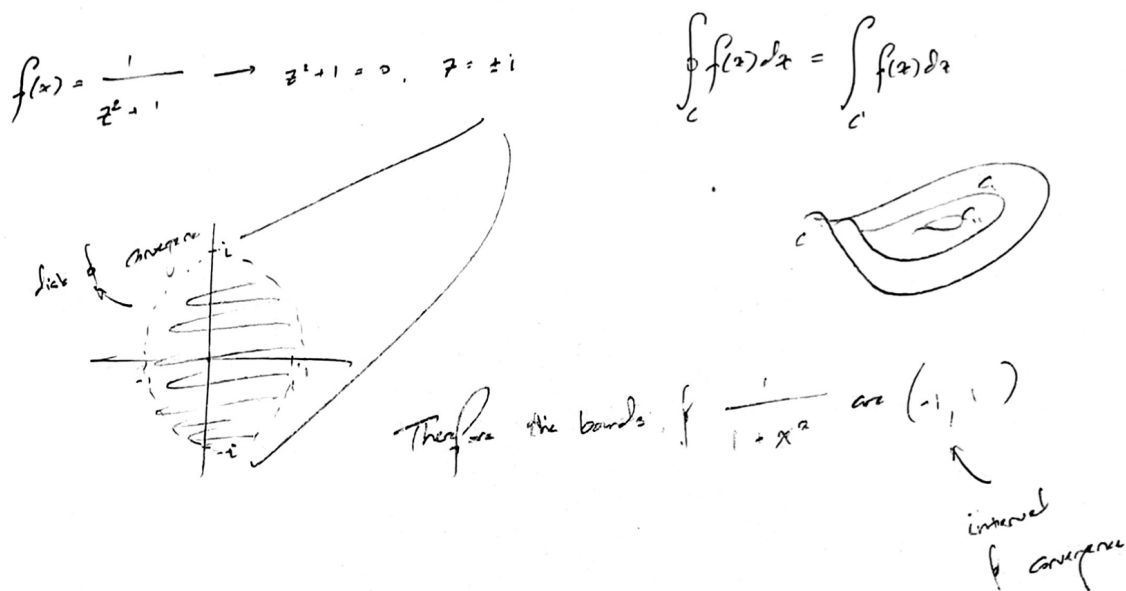 f(x) = 1/(z² + 1) → z² + 1 = 0, z = ± i
∮_C f(z) dz = ∫_C' f(z) dz
disk of convergence
i
-i
1
C
C₁
Therefore the bounds of 1/(1 + x²) are (-1, 1)
interval
of convergence